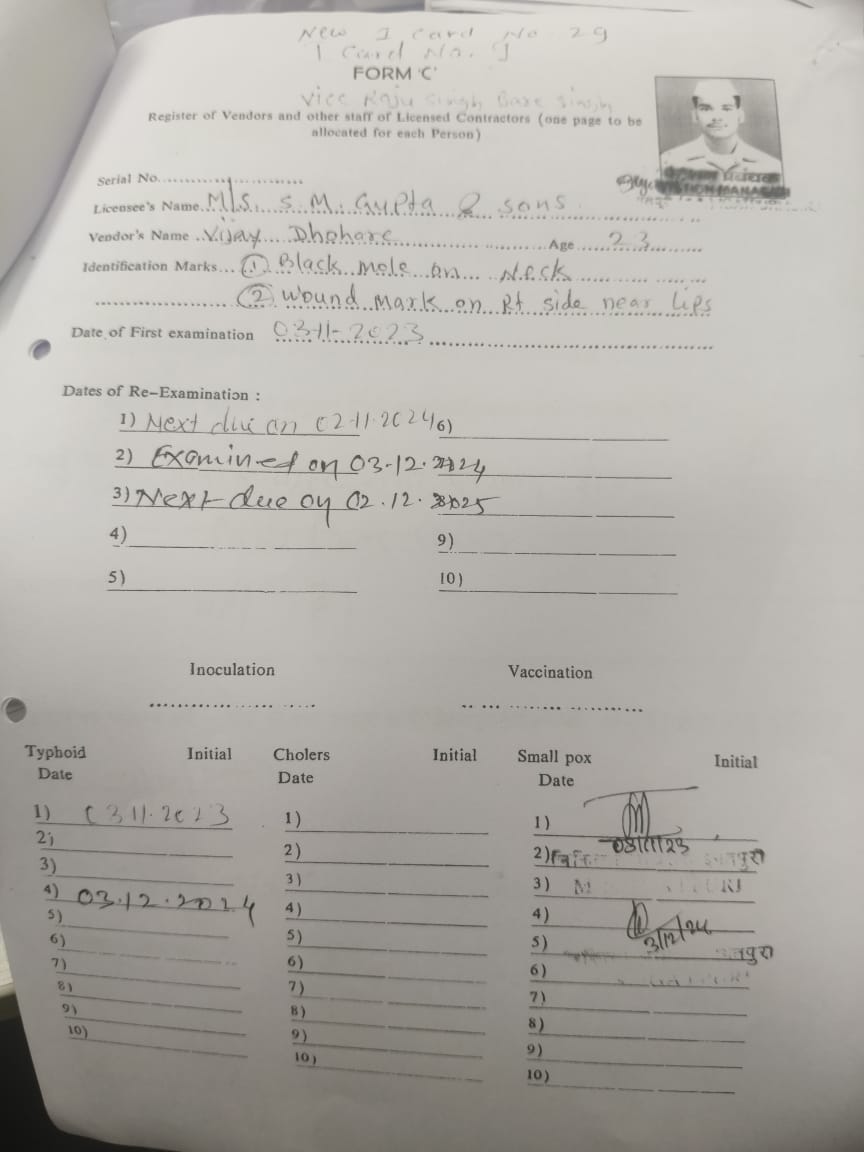 New I Card No. 29
I Card No. J
FORM 'C'
Vice Raju Singh Singh
Register of Vendors and other staff of Licensed Contractors (one page to be
allocated for each Person)
STATION MANAGER
Serial No.
Licensee's Name M/S. S. M. Gupta & sons.
Vendor's Name Vijay Dhohare Age 23
Identification Marks... ① Black mole on Neck
② wound mark on Rt side near lips
Date of First examination 03-11-2023
Dates of Re-Examination :
1) Next due on 02-11-2024 6)
2) Examined on 03-12-2024
3) Next due on 02.12.2025
4) 9)
5) 10)
Inoculation Vaccination
Typhoid Initial Cholers Initial Small pox Initial
Date Date Date
1) 03.11.2023 1) 1)
2) 2) 2) 03/11/23
3) 3) 3)
4) 03.12.2024 4) 4)
5) 5) 5) 3/12/24
6) 6) 6)
7) 7) 7)
8) 8) 8)
9) 9) 9)
10) 10) 10)